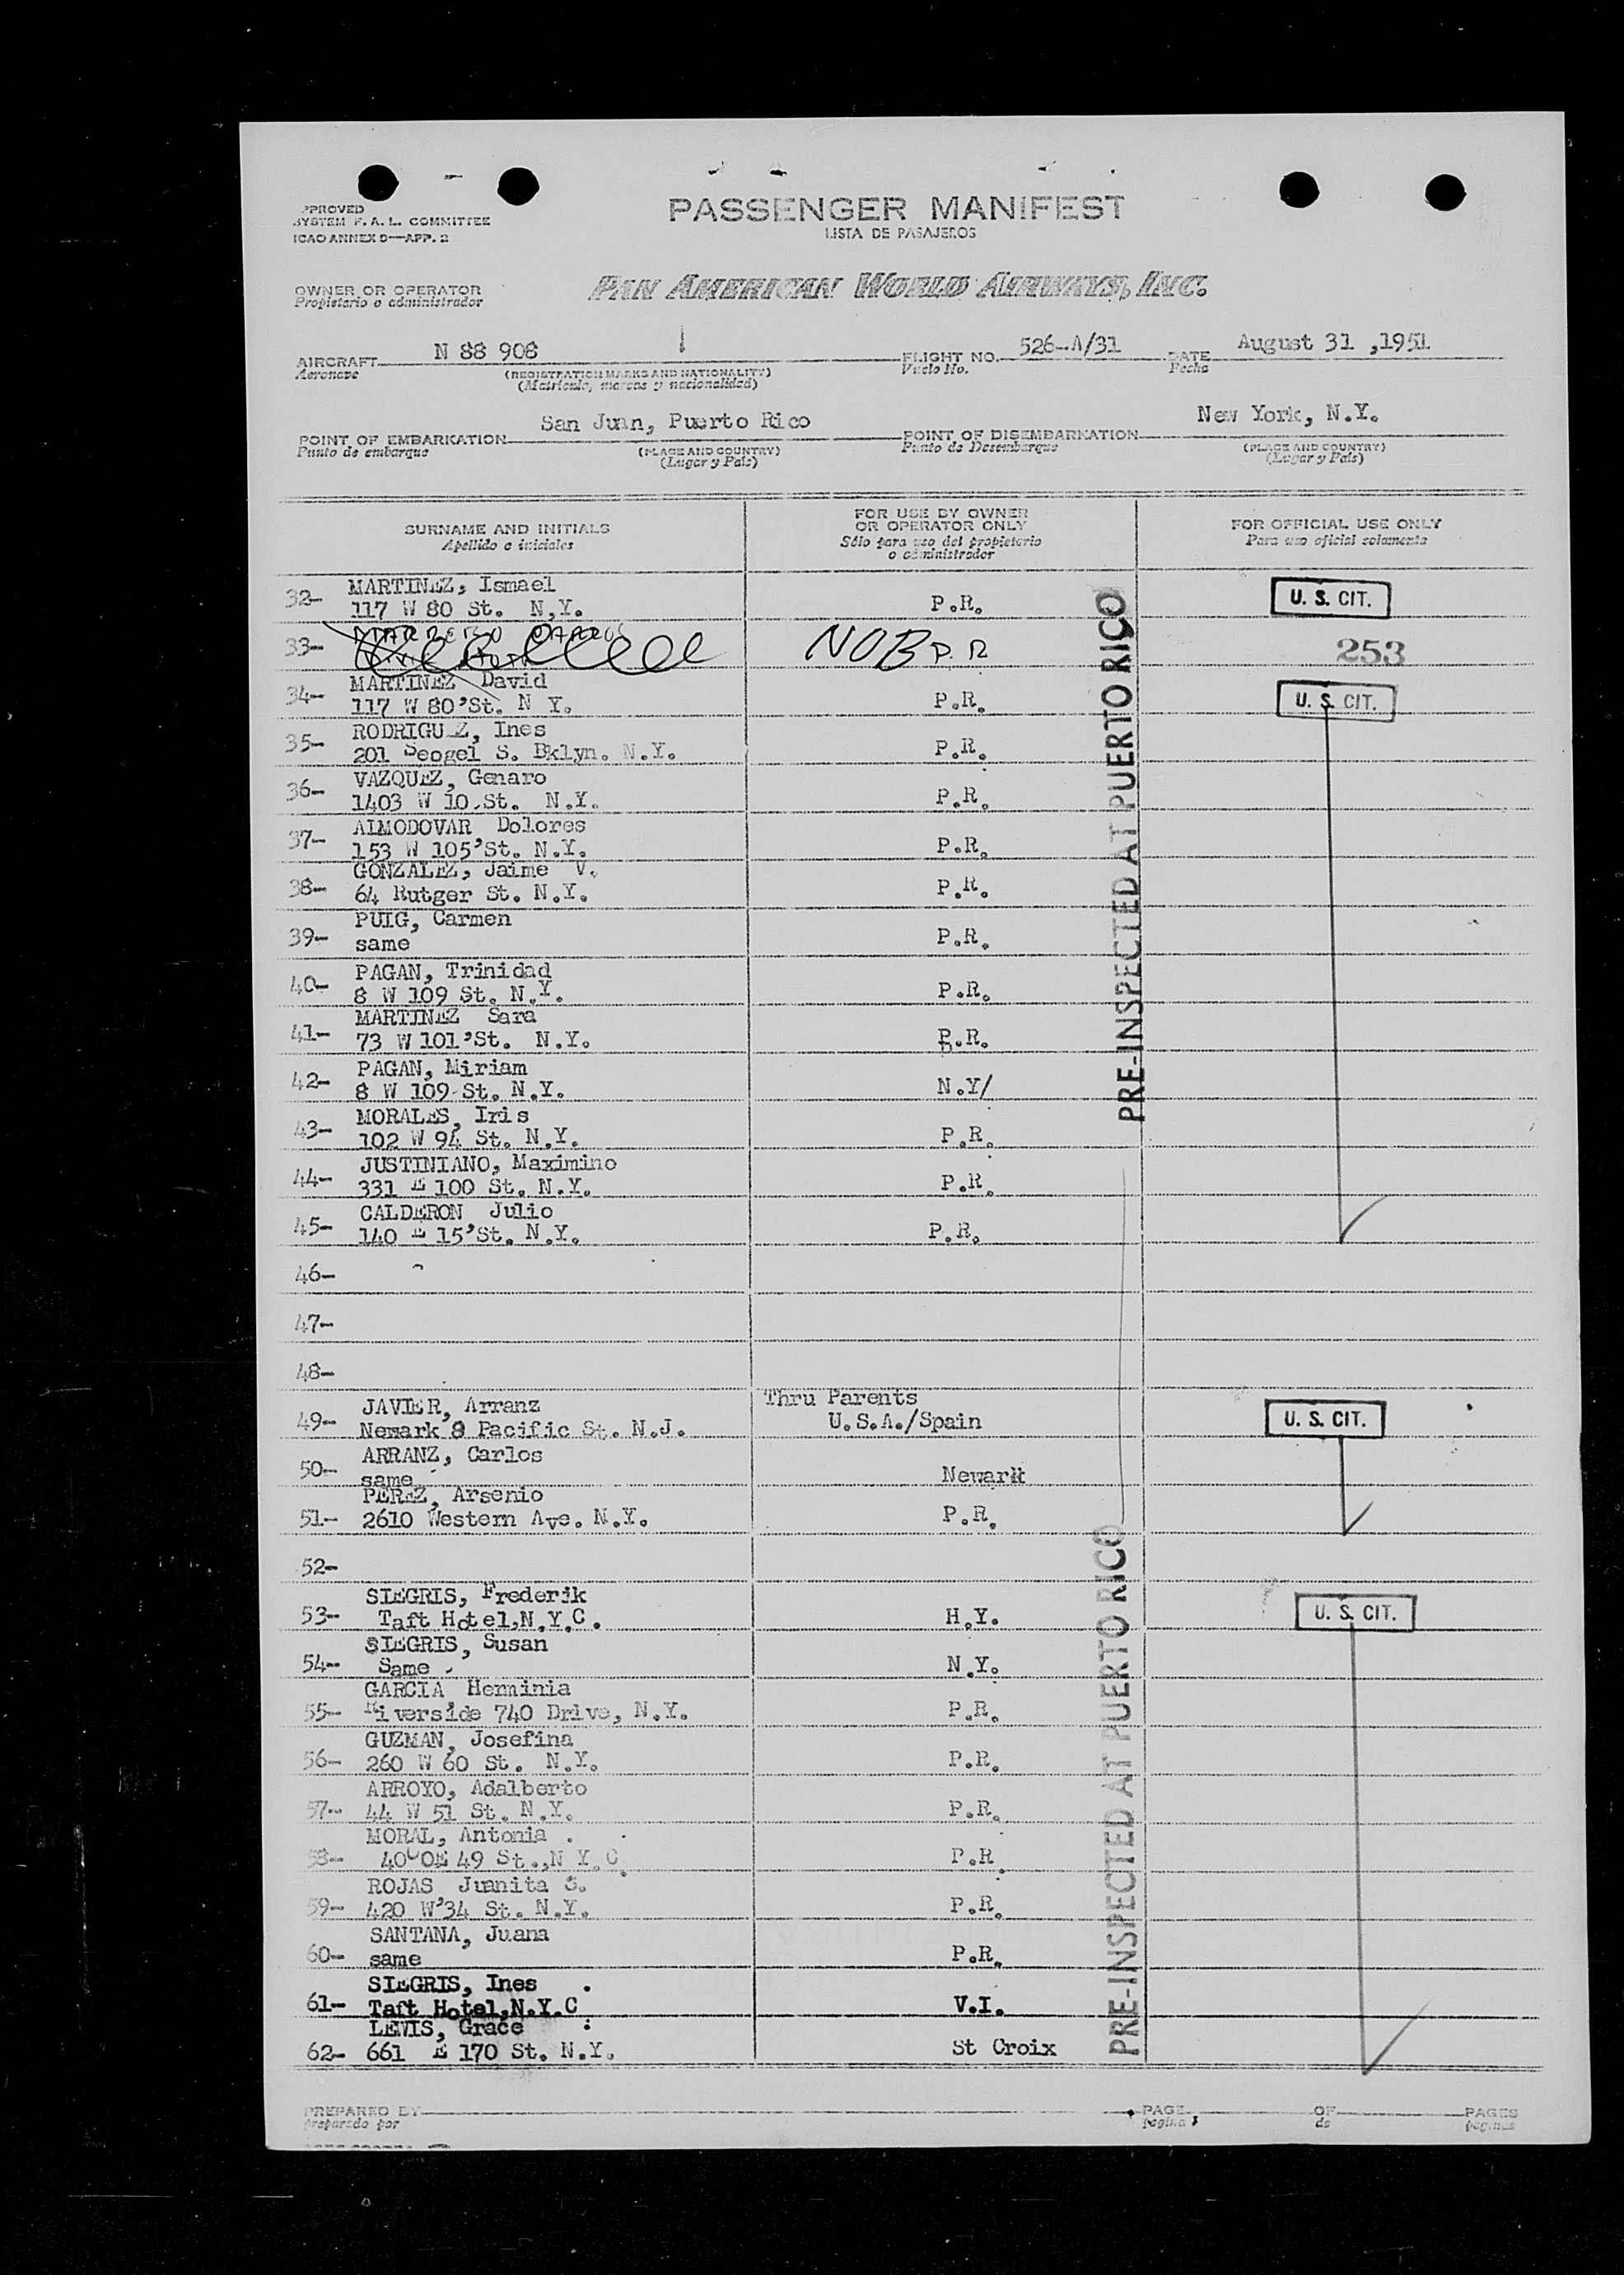 PPROVED
SYSTEM F. A. L. COMMITTEE
ICAO ANNEX 9—APP. 2
PASSENGER MANIFEST
LISTA DE PASAJEROS
OWNER OR OPERATOR
Propietario o administrador
PAN AMERICAN WORLD AIRWAYS, INC.
AIRCRAFT N 88 908
Aeronave
(REGISTRATION MARKS AND NATIONALITY)
(Matricula, marcas y nacionalidad)
FLIGHT NO. 526-A/31
Vuelo No.
DATE August 31 ,1951
Fecha
POINT OF EMBARKATION San Juan, Puerto Rico
Punto de embarque
(PLACE AND COUNTRY)
(Lugar y País)
POINT OF DISEMBARKATION New York, N.Y.
Punto de Desembarque
(PLACE AND COUNTRY)
(Lugar y País)
SURNAME AND INITIALS
Apellido e iniciales
FOR USE BY OWNER
OR OPERATOR ONLY
Sólo para uso del propietario
o administrador
FOR OFFICIAL USE ONLY
Para uso oficial solamente
32- MARTINEZ, Ismael
117 W 80 St. N.Y. P.R. U. S. CIT.
33- NOB P. R 253
34- MARTINEZ David
117 W 80'St. N Y. P.R. U. S. CIT.
35- RODRIGU Z, Ines
201 Seogei S. Bklyn. N.Y. P.R.
36- VAZQUEZ, Genaro
1403 W 10.St. N.Y. P.R.
37- ALMODOVAR Dolores
153 W 105'St. N.Y. P.R.
38- GONZALEZ, Jaime V.
64 Rutger St. N.Y. P.R.
39- PUIG, Carmen
same P.R.
40- PAGAN, Trinidad
8 W 109 St. N.Y. P.R.
41- MARTINEZ Sara
73 W 101'St. N.Y. P.R.
42- PAGAN, Miriam
8 W 109 St. N.Y. N.Y/
43- MORALES, Iris
102 W 94 St. N.Y. P.R.
44- JUSTINIANO, Maximino
331 E 100 St. N.Y. P.R.
45- CALDERON Julio
140 E 15'St. N.Y. P.R.
PRE-INSPECTED AT PUERTO RICO
46-
47-
48-
49- JAVIER, Arranz Thru Parents
Newark 8 Pacific St. N.J. U.S.A./Spain U. S. CIT.
50- ARRANZ, Carlos
same Newark
51- PEREZ, Arsenio
2610 Western Ave. N.Y. P.R.
52-
53- SIEGRIS, Frederik
Taft Hotel,N.Y.C. H.Y. U. S. CIT.
54- SIEGRIS, Susan
Same N.Y.
55- GARCIA Herminia
Riverside 740 Drive, N.Y. P.R.
56- GUZMAN, Josefina
260 W 60 St. N.Y. P.R.
57- ARROYO, Adalberto
44 W 51 St. N.Y. P.R.
58- MORAL, Antonia .
49 St.,N Y.C P.R.
59- ROJAS Juanita S.
420 W'34 St. N.Y. P.R.
60- SANTANA, Juana
same P.R.
61- SIEGRIS, Ines
Taft Hotel,N.Y.C V.I.
62- LEWIS, Grace
661 E 170 St. N.Y. St Croix
PRE-INSPECTED AT PUERTO RICO
PREPARED BY
preparado por
PAGE OF PAGES
página de páginas